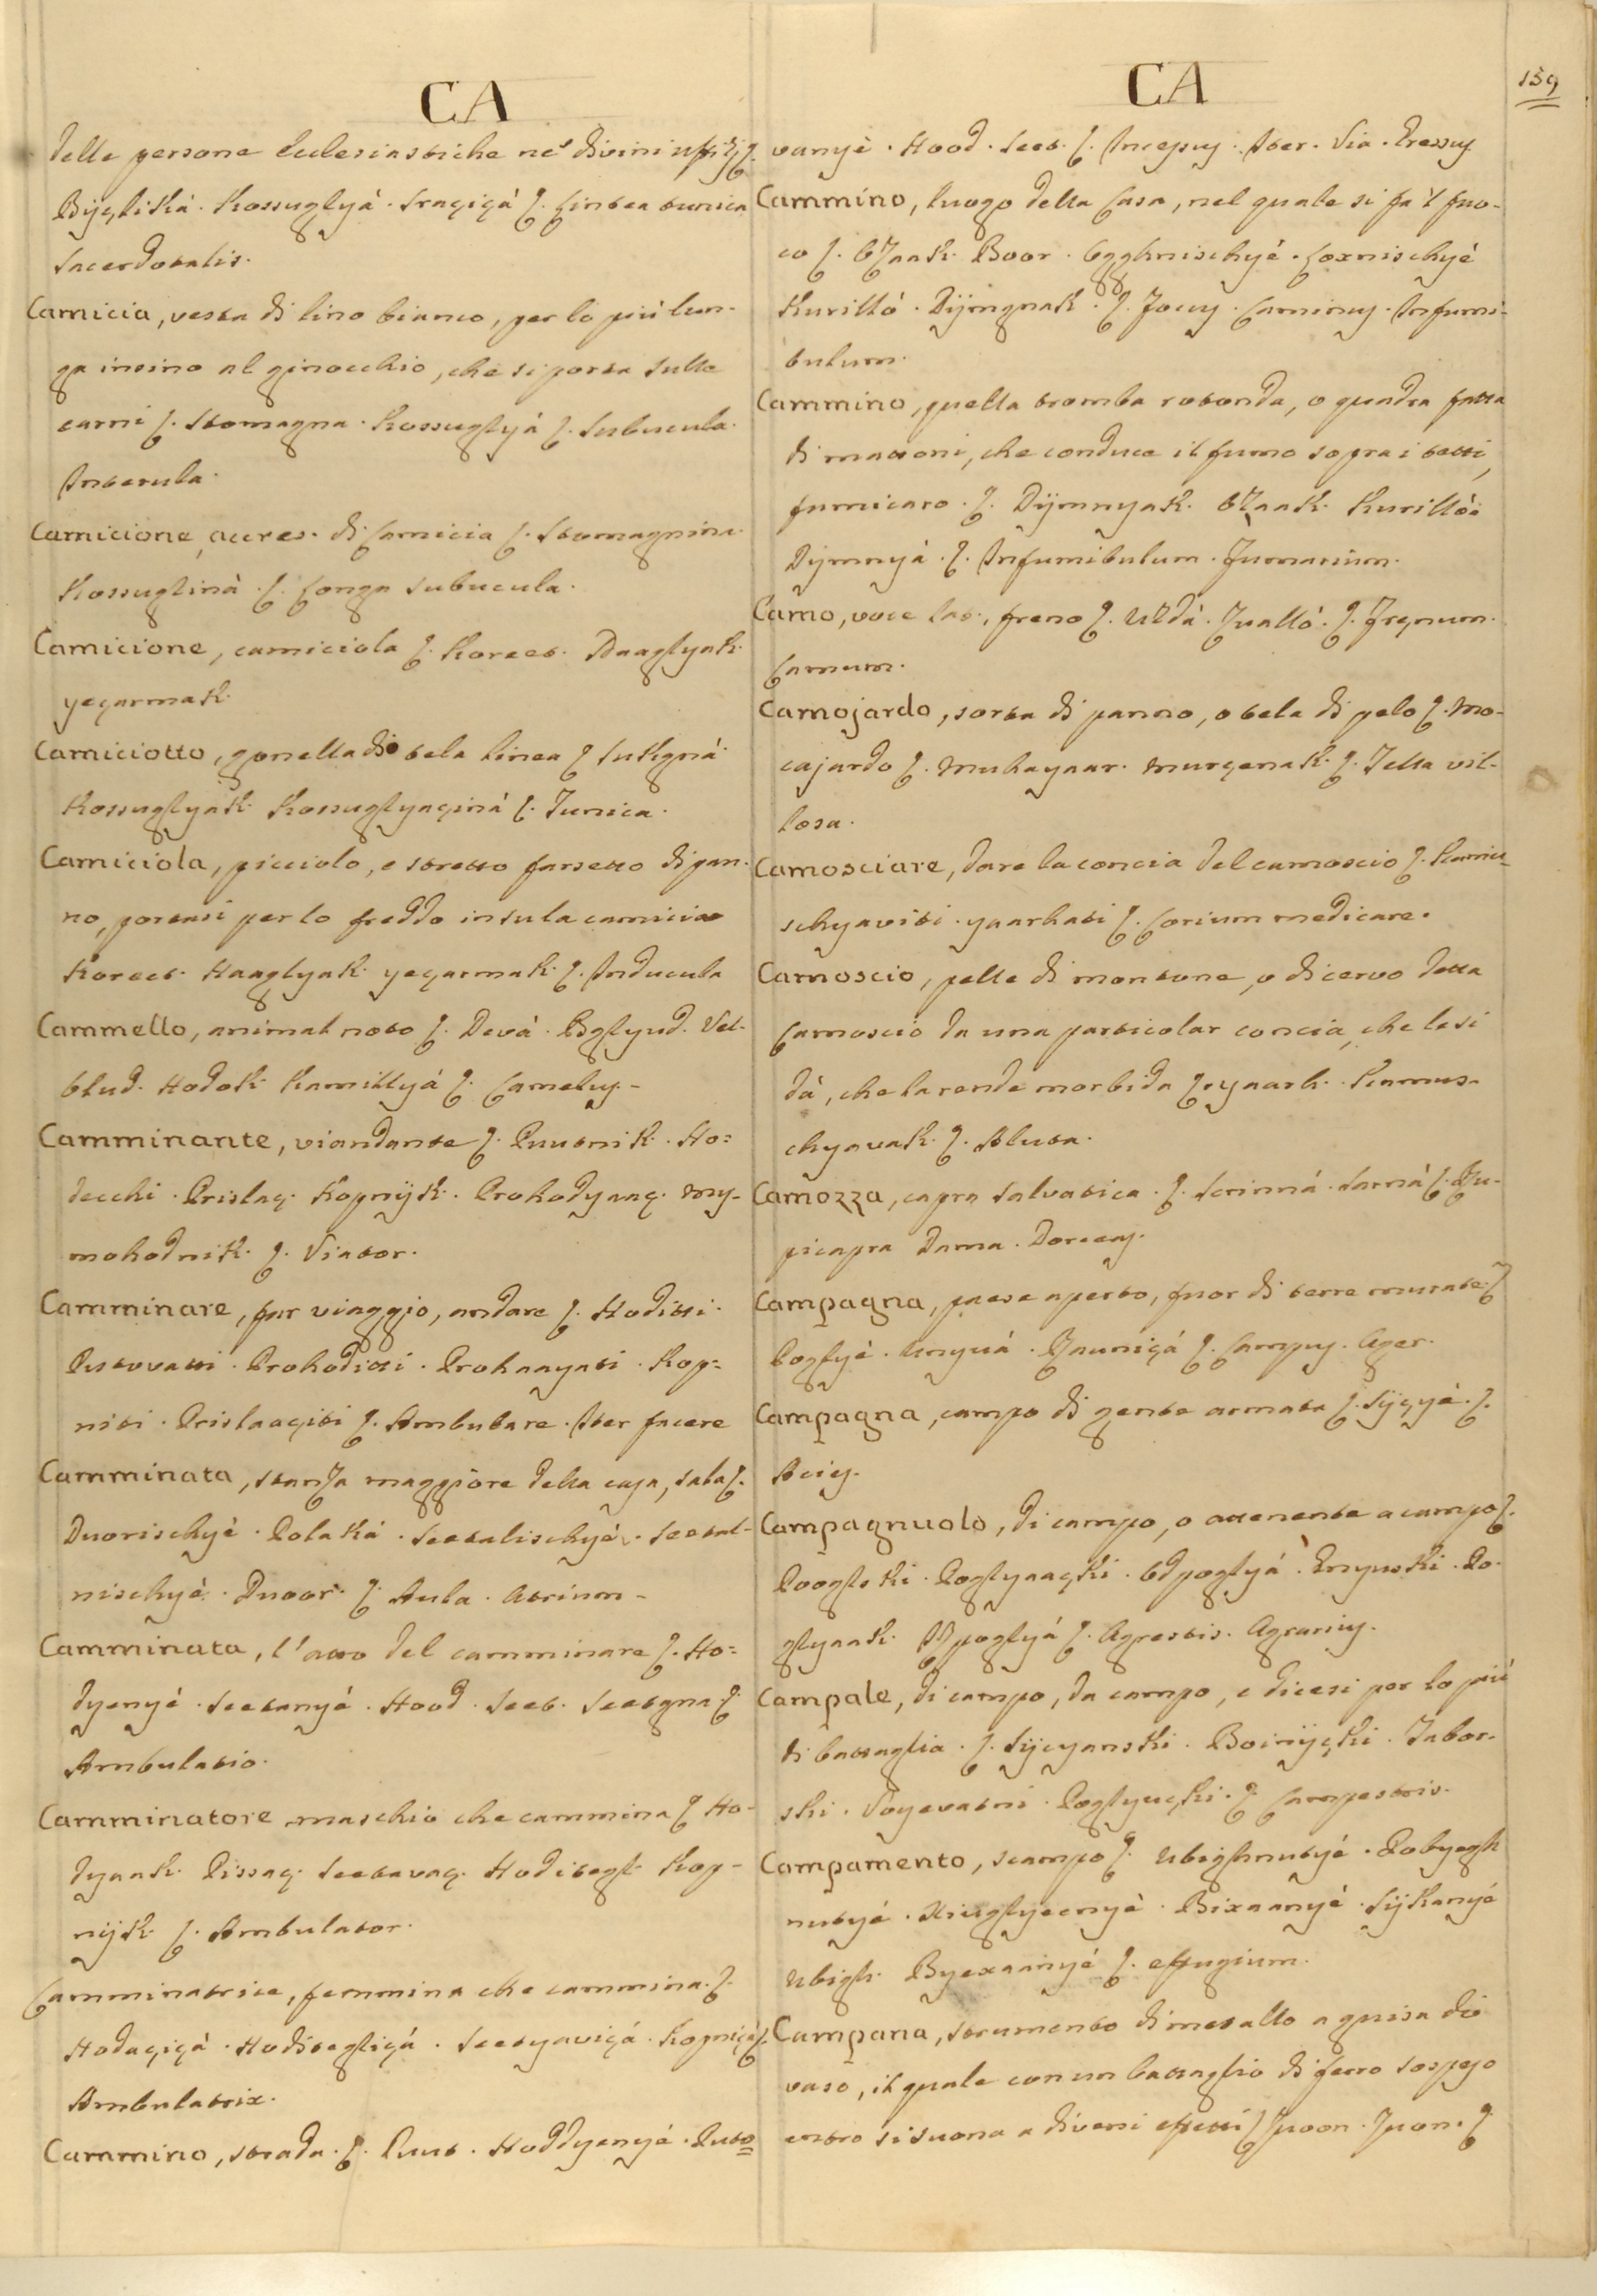 CA
delle persone Eclesiastiche ne' divini ufizj ſ.
Bijçliká. Kossuglyá. Sraçiçá ſ. Lintea tunica
Sacerdotalis.
Camicia, vesta di lino bianco, per lo più lun-
ga insino al ginocchio, che si porta sulle
carni ſ. Stomagna. Kossuglyá ſ. Subucula.
Interula.
Camicione, accres. di Camicia ſ. Stomagnina.
Kossuglinà. ſ. Longa subucula.
Camicione, camiciola ſ. Koreet. Haaglyak.
yeçarmak.
Camiciotto, gonella di tela linea ſ. Sukgná.
Kossuglyak. Kossuglyaçiná ſ. Tunica.
Camiciola, picciolo, e stretto farsetto di pan-
no, portasi per lo freddo in su la camicia
Koreet. Haaglyak. yeçarmak. ſ. Inducula
Cammello, animal noto ſ. Devá. Bglyud. Vel-
blud. Hodok. Kamillyá ſ. Camelus. -
Camminante, viandante ſ. Puutnik. Ho-
decchi. Prislaç. Kopnijk. Prohodyaaç. my-
mohodnik. ſ. Viator.
Camminare, far viaggio, andare ſ. Hoditti.
Putovatti. Prohoditti. Prohaayati. Kop-
niti. Prislaaçiti ſ. Ambulare. Iter facere
Camminata, stanza maggiore della casa, sala ſ.
Dvorischyè. Polaká. Seetalischyé. Seetal-
nischyé. Dvoor. ſ. Aula. Atrium -
Camminata, l'atto del camminare ſ. Ho-
dyenyé. Seetanyé. Hood. Seet. Seetgna ſ.
Ambulatio.
Camminatore, maschio che cammina ſ. Ho-
dyaak. Pissaç. Seetavaç. Hoditegl. Kop-
nijk. ſ. Ambulator.
Camminatrice, femmina che cammina. ſ.
Hodaçiçá. Hoditegliçá. Seetyaviçá. Kopniçá ſ.
Ambulatrix.
Cammino, strada. ſ. Puut. Hoddyenyé. Puto
CA
159
vanyè. Hood. Seet. ſ. Incessus. Iter. Via. Gressus
Cammino, luogo della Casa, nel quale si fa 'l fuo-
co ſ. Ozaak. Boor. Ogghnischyé. Loxnischyé
Kurilló. Dijmgnak. ſ. Focus. Caminus. Infumi-
bulum.
Cammino, quella tromba rotonda, o quadra fatta
di mattoni, che conduce il fumo sopra i tetti,
fumicaro. ſ. Dijmnyak. Ozaak. Kurilló.
Dijmnyá. ſ. Infumibulum. Fumarium.
Camo, voce lat., freno ſ. Uzdá. Zualló. ſ. Frenum.
Camum.
Camojardo, sorta di panno, o tela di pelo ſ. Mo-
cajardo ſ. Muhayaar. Murçenak. ſ. Tella vil-
losa.
Camosciare, dare la concia del camoscio ſ. Kamu-
schyaviti. yaarhati ſ. Corium medicare.
Camoscio, pelle di montone, o di cervo detta
Camoscio da una particolar concia, che le si
dà, che la rende morbida ſ. yaarh. Kamus-
chyavak. ſ. Aluta.
Camozza, capra salvatica. ſ. Scrinná. Sarná ſ. Ru-
picapra Dama. Dorcas.
Campagna, paese aperto, fuor di terre murate ſ.
Poglyè. Unyvá. Raunicá ſ. Campus. Ager.
Campagna, campo di gente armata ſ. Sijçyé. ſ.
Acies.
Campagnuolo, di campo, o attenente a campo ſ.
Pooglski. Poglyaaçki. Odpoglyá. Gnyvski. Po-
glyaak. Izpoglyá ſ. Agrestis. Agrarius.
Campale, di campo, da campo, e dicesi per lo più
di battaglia. ſ. Sijcyanski. Boinijçki. Tabor-
ski. Voyevatni. Poglyuçki. ſ. Campestris.
Campamento, scampo ſ. Ubighnutyé. Pobyegh
nutyé. Uklyeenyè. Bixaanyè. Sijkanyé
Ubigh. Byexaanyé ſ. effugium.
Campana, strumento di metallo a guisa di
vaso, il quale con un battaglio di ferro sospeso
entro si suona a diversi effetti ſ Zvoon. Zvon. ſ.